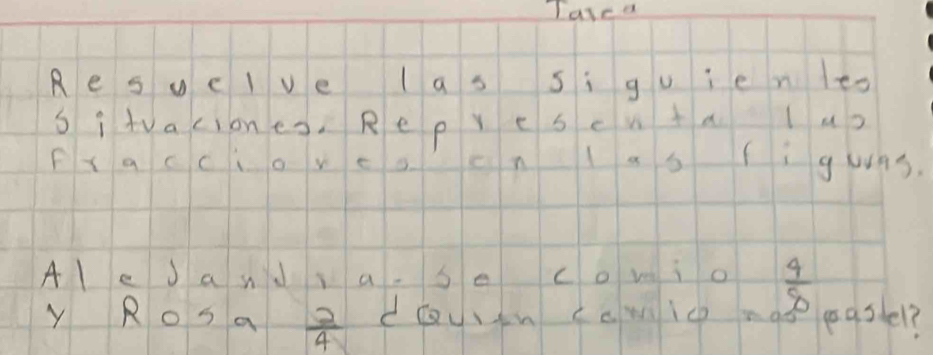 Tarea
Resuelve las siguientes
situaciones. Representa las
Fracciones en las figuras.
Alejandra se comio 4/8
y Rosa 2/4 ¿Quien comio mas pastel?